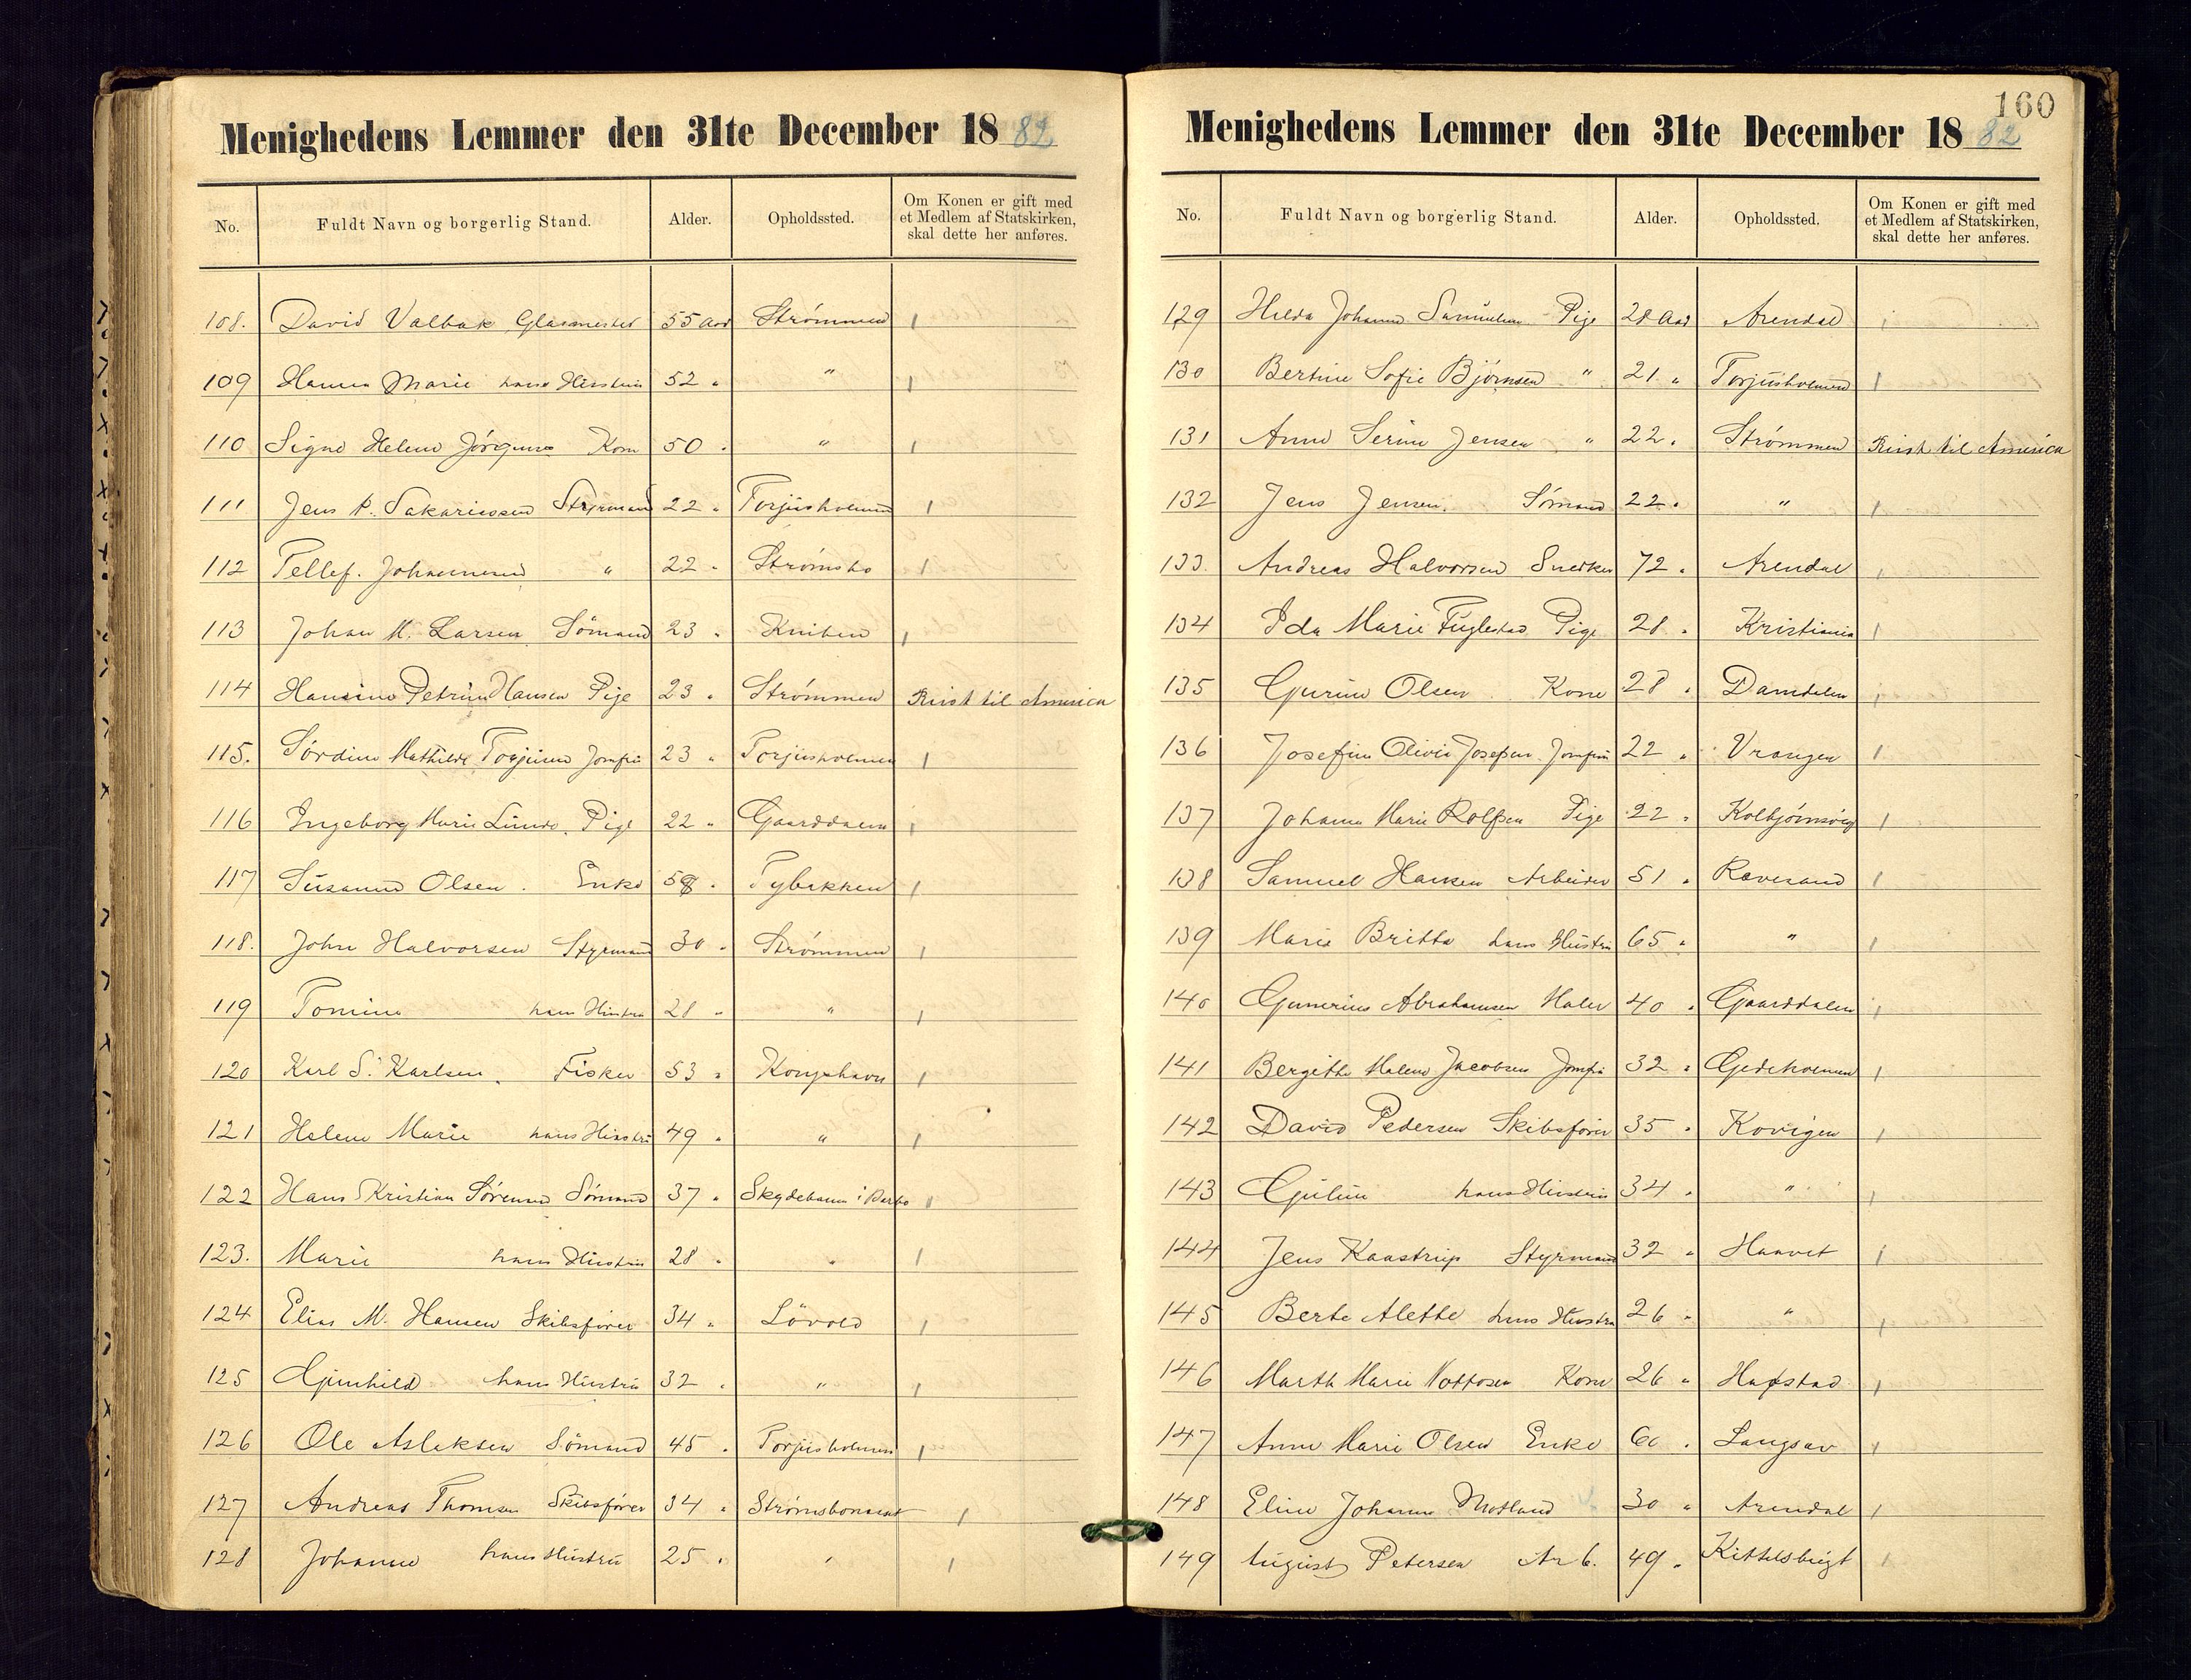 Menighedens Lemmer den 31te December 1882
No. Fuldt Navn og borgerlig Stand. Alder. Opholdssted. Om Konen er gift med et Medlem af Statskirken, skal dette her anføres.
108. David Valbak Glasmester 55 Aar Strømmen
109 Hanna Marie hans Hustru 52 " "
110 Signe Helene Kone 50 " "
111 Jens P. Sakariessen Styrmand 22 " Torjusholmen
112 Tellef. Johannesen " 22 " Strømsbo
113 Johan M. Larsen Sömand 23 "
114 Hansine Petrine Hansen Pige 23 " Strømmen Reist til America
115. Sørdine Mathilde Jomfru 23 " Torjusholmen
116 Ingeborg Marie Pige 22 " Gaarddalen
117 Susanne Olsen. Enke 58 " Tybakken
118. John Halvorsen Styrmand 30 " Strømmen
119 Tomine hans Hustru 28 " "
120 Karl S. Karlsen. Fisker 53 " Kongshavn
121 Helene Marie hans Hustru 49 " "
122 Hans Kristian Sørensen Sömand 37 " i Barbo
123. Marie hans Hustru 28 " "
124 Elias M. Hansen Skibsfører 34 " Lövold
125 Gunhild hans Hustru 32 " "
126 Ole Aslaksen Sömand 45 " Torjusholmen
127 Andreas Thomsen Skibsfører 34 "
128 Johanne hans Hustru 25 " "
160
Menighedens Lemmer den 31te December 1882
No. Fuldt Navn og borgerlig Stand. Alder. Opholdssted. Om Konen er gift med et Medlem af Statskirken, skal dette her anføres.
129 Hilda Johanne Pige 28 Aar Arendal
130 Bertine Sofie Bjørnsen " 21 " Torjusholmen
131 Anne Serine Jensen " 22 " Strømmen Reist til America
132 Jens Jensen. Sømand 22 " "
133. Andreas Halvorsen Snedker 72 " Arendal
134 Ida Marie Fuglestad Pige 28 " Kristiania
135 Gurine Olsen Kone 28 " Damdalen
136 Josefine Olivie Josefsen Jomfru 22 " Vrangen
137 Johanne Marie Rolfsen Pige 22 " Kolbjørnsvig
138 Samuel Hansen Arbeider 51 " Revesand
139 Marie Britta hans Hustru 65 " "
140 Gunerius Abrahamsen Maler 40 " Gaarddalen
141 Bergithe Malene Jacobsen Jomfru 32 " Gjedeholmen
142 David Pedersen Skibsfører 35 "
143 hans Hustru 34 " "
144 Jens Kaastrup Styrmand 32 " Haavet
145 Berte Alette hans Hustru 26 " "
146 Marth Marie Kone 26 "
147 Anne Marie Olsen Enke 60 " Langsæv
148 Eline Johanne 30 " Arendal
149 August Petersen Arb. 49 " Kittelsbugt